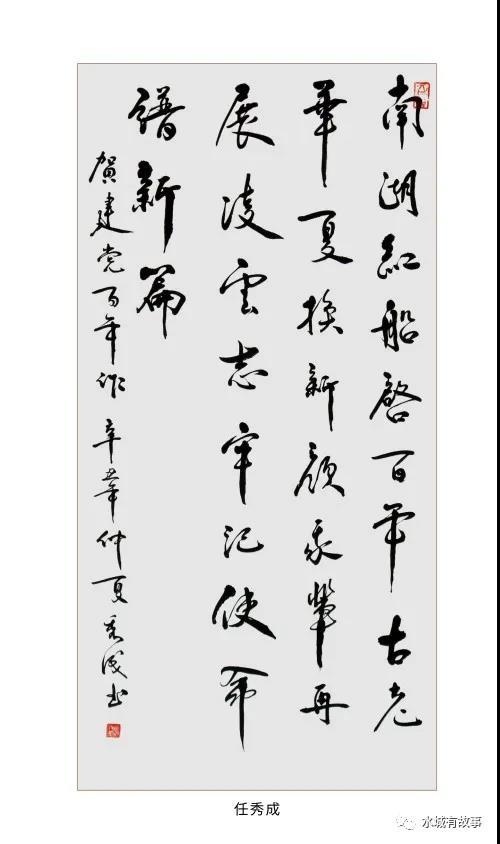 南湖紅船啓百年古老
華夏换新顔我輩再
展凌雲志牢记使命
譜新篇
賀建党百年作 辛丑年仲夏秀成书
任秀成
水城有故事